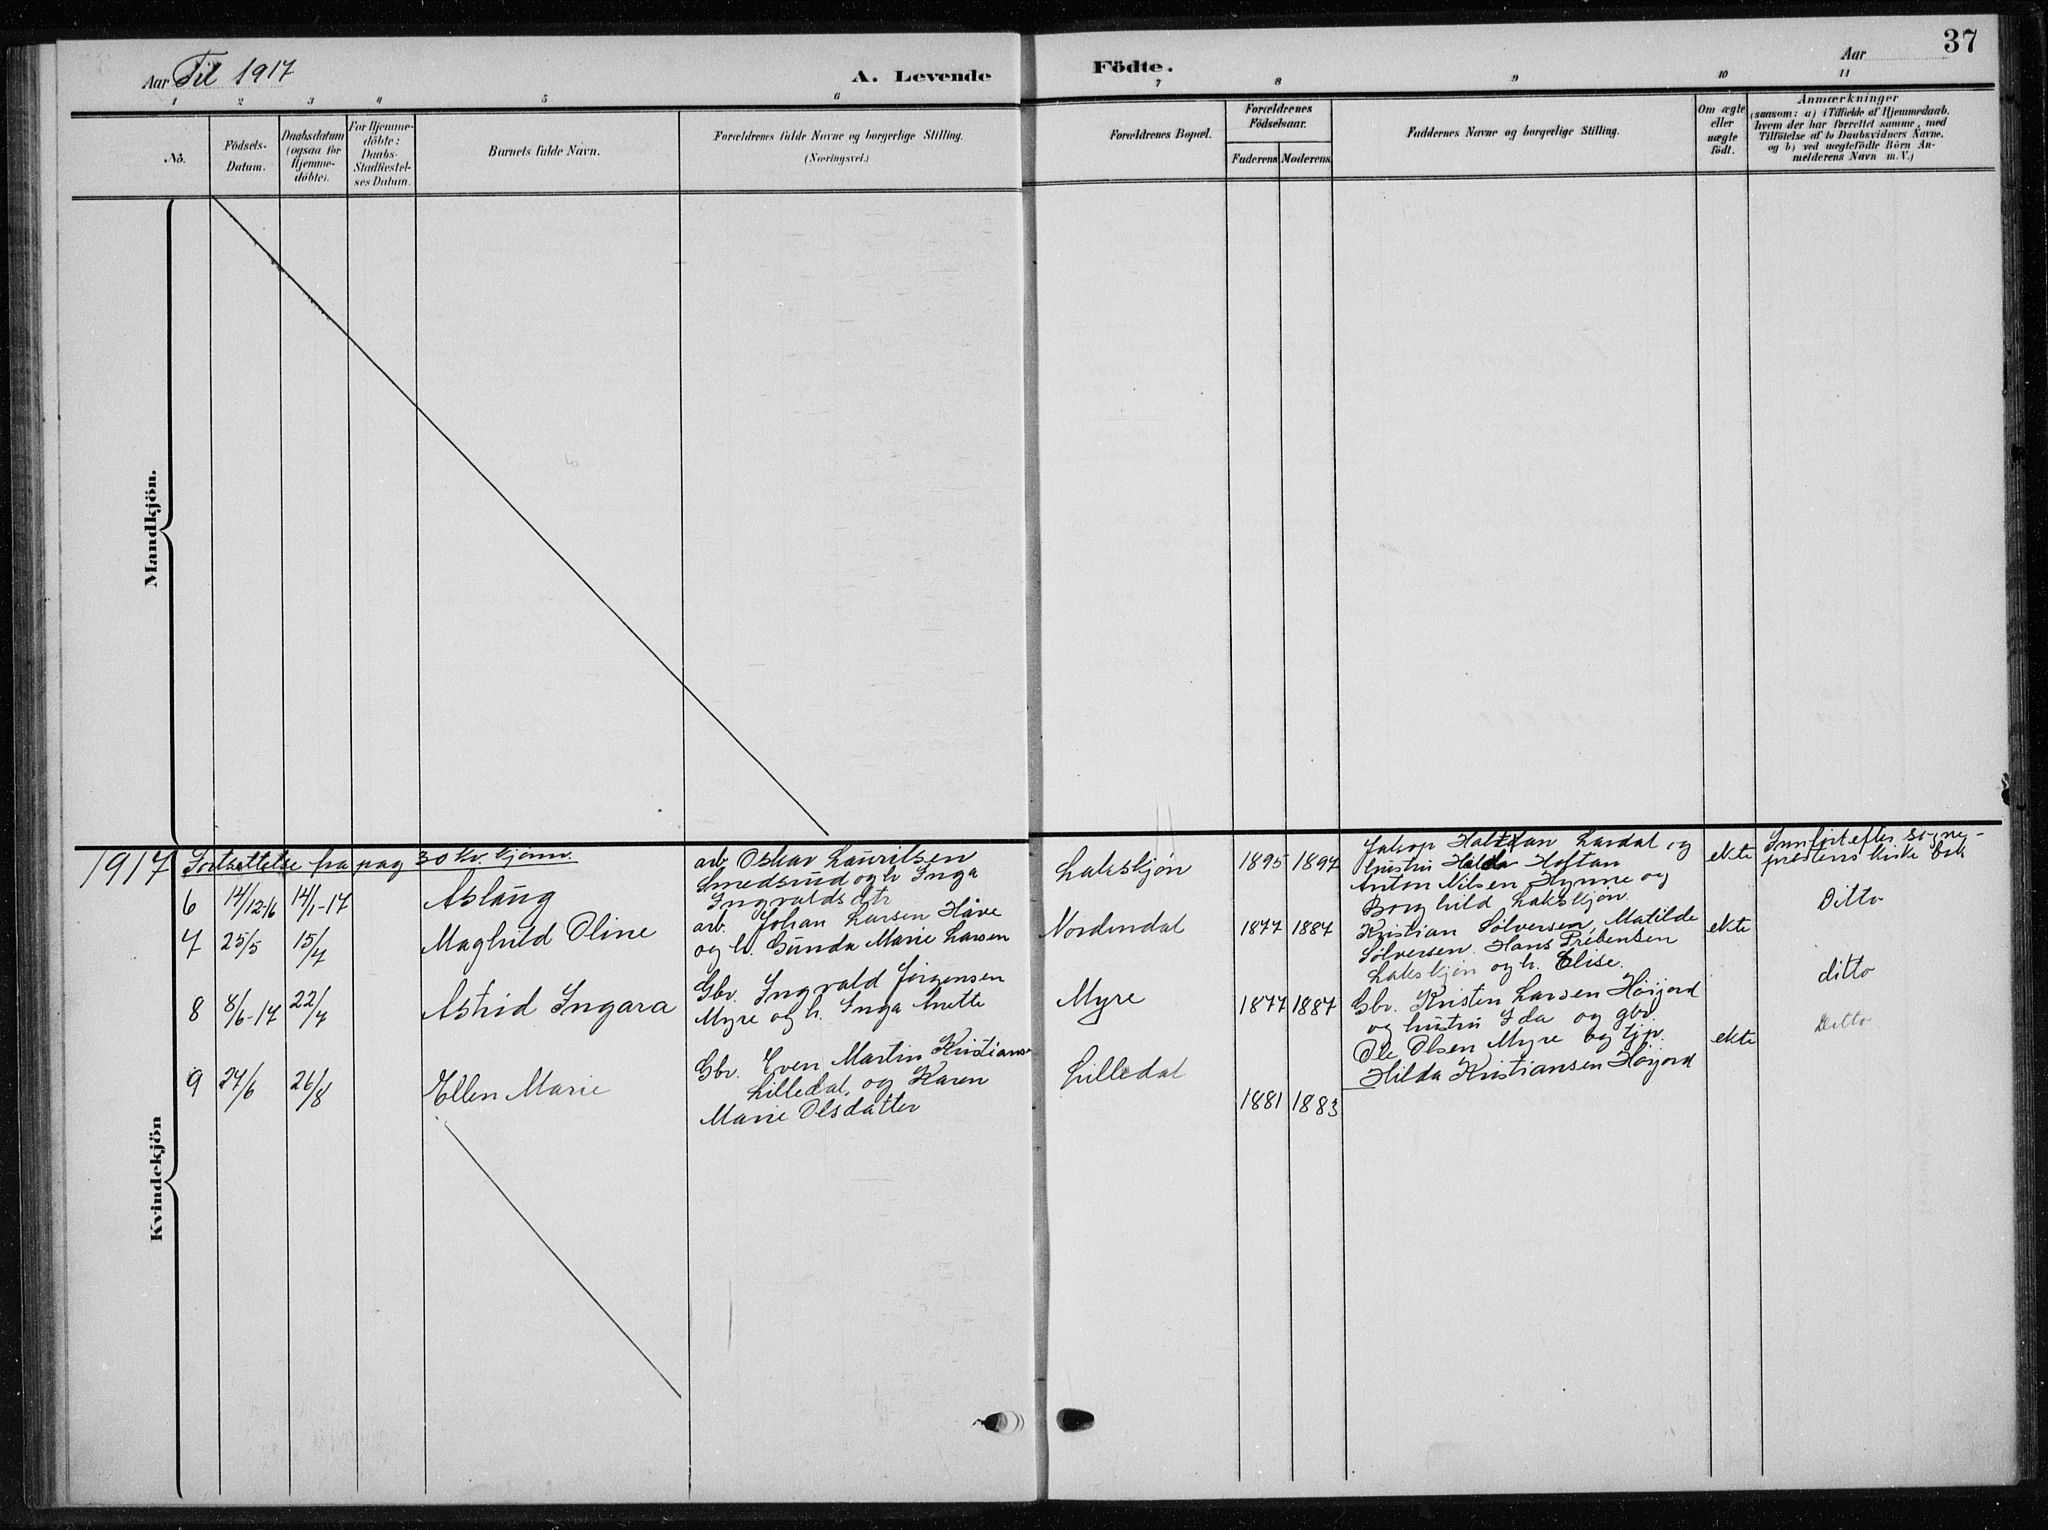 37
Aar Til 1917
A. Levende
Födte.
Aar
1 2 3 4 5 6 7 8 9 10 11
No.
Födsels-
Datum.
Daabsdatum
(ogsaa for
Hjemme-
döbte).
For Hjemme-
döbte:
Daabs-
Stadfæstel-
ses Datum.
Barnets fulde Navn.
Forældrenes fulde Navne og borgerlige Stilling.
(Næringsvei.)
Forældrenes Bopæl.
Forældrenes
Födselsaar.
Faderens Moderens
Faddernes Navne og borgerlige Stilling.
Om ægte
eller
uægte
födt.
Anmærkninger
(saasom: a) i Tilfælde af Hjemmedaab,
hvem der har forrettet samme, med
Tilföielse af to Daabsvidners Navne,
og b) ved uægtefödte Börn An-
melderens Navn m.V.)
Mandkjön.
Kvindekjön
1917 Fortsættelse fra pag 30 kv. kjönn.
6 14/12-16 14/1-17 Aslaug
arb. Oskar Lauritsen
Smedsrud og h. Inga
Ingvaldsdtr
Lakskjøn
1895 1897
Jakop Halfdan Lardal og
hustru Hilda Hoftan
Anton Nilsen Hynne og
Borghild Lakskjøn.
ekte
Innført efter sogne-
prestens kirkebok
7 25/5 15/7 Maghild Oline
arb. Johan Larsen Håve
og h. Gunda Marie Larsen
Nordendal
1877 1887
Kristian Sølversen, Matilde
Sølversen. Hans Prebensen
Lakskjøn og h. Elise.
ekte
Ditto
8 8/6-17 22/7 Astrid Ingara
Gbr. Ingvald Jørgensen
Myre og h. Inga Anette
Myre
1877 1887
Gbr. Kristen Larsen Høijord
og hustru Ida og gbr.
Ole Olsen Myre og tjp.
Hilda Kristiansen Høijord
ekte
ditto
9 24/6 26/8 Ellen Marie
Gbr. Even Martin Kristianse
Lilledal, og Karen
Marie Olsdatter
Lilledal
1881 1883
Ditto